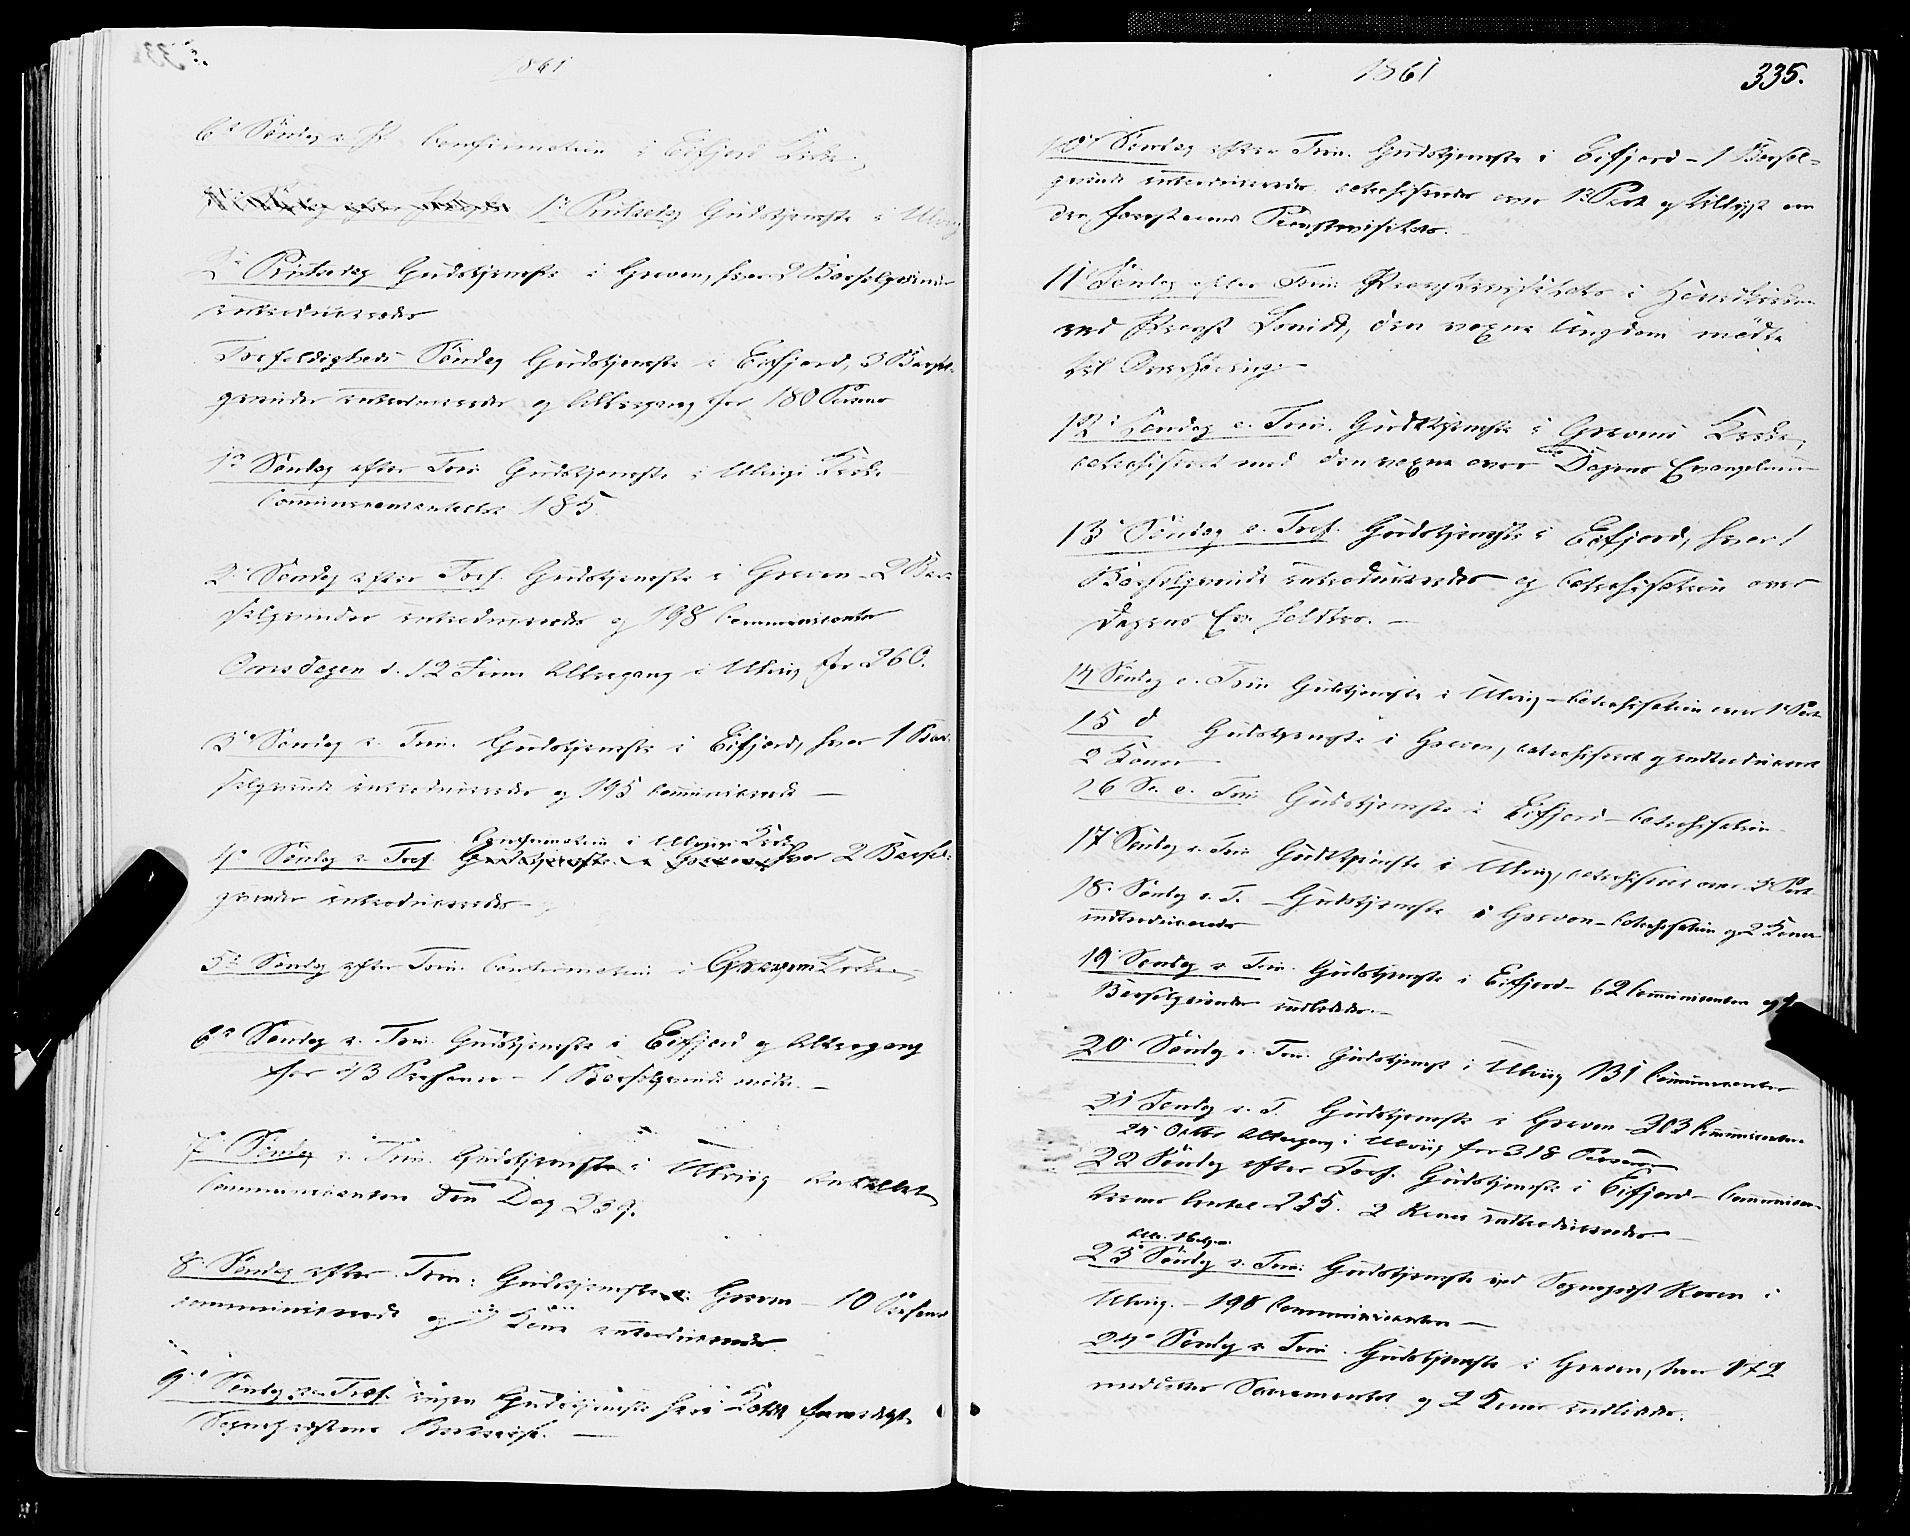 1861
6te Søndag e. P. Confirmation i Eifjord Kirke,
1ste Pintsedag Gudstjeneste i Ulvig
2den Pintsedag Gudstjeneste i Graven, hvor 2 Barselqvinder
introduceredes
Trefoldigheds Søndag Gudstjeneste i Eifjord, 3 Barsel-
qvinder introduceredes og Altergang for 180 Personer
1ste Søndag efter Trin. Gudstjeneste i Ulvigs Kirke
Communicantallet 185.
2den Søndag efter Tref. Gudstjeneste i Graven - 2 Bar-
selqvinder introduceredes og 198 Communicanter
Onsdagen d. 12 Juni Altergang i Ulvig for 260.
3die Søndag e. Trin. Gudstjeneste i Eifjord, hvor 1 Bar-
selqvinde introduceredes og 195 communicerede —
Confirmation i Ulvigs Kirke
4de Søndag e. Tref. Gudstjeneste i Graven, hvor 2 Barsel-
qvinder introduceredes -
5te Søndag efter Trin. Confirmation i Graven Kirke,
6te Søndag e. Trin. Gudstjeneste i Eifjord og Altergang
for 43 Personer - 1 Barselqvinde mødte. —
7de Søndag e. Trin. Gudstjeneste i Ulvig Antallet
Communicanter den Dag 239.
8de Søndag efter Trin: Gudstjeneste i Graven - 10 Personer
communicerede og Kone introduceredes.
9de Søndag e. Tref. ingen Gudstjeneste her i Kaldet formedelst
Sognepræstens Bortreise. —
1861
335.
10de Søndag efter Trin. Gudstjeneste i Eifjord - 1 Barsel-
qvinde introduceredes catechiseredes over 1ste Part og tillyst om
den forestaaende Provstevisitats.
11te Søndag efter Trin: Provstevisitats i Hovedkirken
ved Provst Smidt, den voxne Ungdom mødte
til Overhøring -
12te Søndag e. Trin. Gudstjeneste i Gravens Kirke,
catechiseret med den voxne over Dagens Evangelium
13de Søndag e. Tref. Gudstjeneste i Eifjord, hvor 1
Barselqvinde introduceredes og Catechisation over
Dagens Ev. holdtes. —
14 Søndag e. Trin Gudstjeneste i Ulvig - Catechisation over 1ste Part
15 d Gudstjeneste i Graven, catechiseret og indtroduceret
2 Koner
16 Sø. e. Trin Gudstjeneste i Eifjord - Catechisation.
17 Søndag e. Trin Gudstjeneste i Ulvig, catechiseret over 3 Part
18de Søndag e. T. - Gudstjeneste i Graven - Catechisation og 2 Koner
indtroduceredes
19de Søndag e. Trin. Gudstjeneste i Eifjord - 62 Communicanter og
Barselqvinder indlededes. -
20de Søndag e. Trin. Gudstjeneste i Ulvig 131 Communicanter
21 Søndag e. T. Gudstjeneste i Graven - 303 Communicanter
24de Octbr Altergang i Ulvig for 318 Personer
22 Søndag efter Tref. Gudstjeneste i Eifjord - Communican-
ternes Antal 255. 2 Koner indtroduceredes —
Alle Helgen
23de Søndag e. Trin: Gudstjeneste ved Sognepræst Koren i
Ulvig. - 198 Communicanter —
24de Søndag e. Trin. Gudstjeneste i Graven, hvor 172
meddeltes Sacramentet og 2 Koner indlededes.